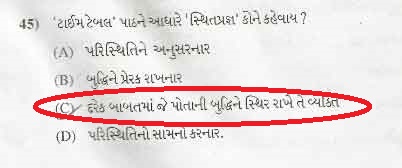 45) 'ટાઈમ ટેબલ' પાઠને આધારે 'સ્થિતપ્રજ્ઞ' કોને કહેવાય ?
(A) પરિસ્થિતિને અનુસરનાર
(B) બુદ્ધિને પ્રેરક રાખનાર
(C) દરેક બાબતમાં જે પોતાની બુદ્ધિને સ્થિર રાખે તે વ્યકિત
(D) પરિસ્થિતિનો સામનો કરનાર.